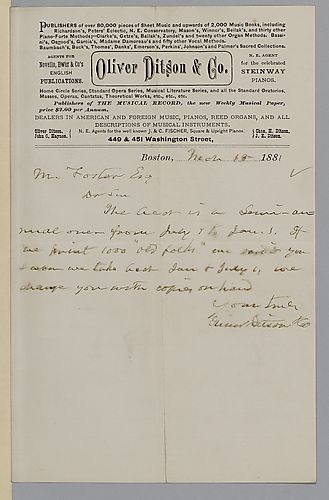 PUBLISHERS of over 80,000 pieces of Sheet Music and upwards of 2,000 Music Books, including
Richardson's, Peters' Eclectic, N. E. Conservatory, Mason's, Winner's, Bellak's, and thirty other
Piano-Forte Methods—Clarke's, Getze's, Bellak's, Zundel's and twenty other Organ Methods. Bassi-
ni's, Osgood's, Garcia's, Madame Damoreau's and fifty other Vocal Methods.
Baumbach's, Buck's, Thomas', Danks', Emerson's, Perkins', Johnson's and Palmer's Sacred Collections.
AGENTS FOR
Novello, Ewer & Co's
ENGLISH
PUBLICATIONS.
Oliver Ditson & Co.
N. E. AGENT
for the celebrated
STEINWAY
PIANOS.
Home Circle Series, Standard Opera Series, Musical Literature Series, and all the Standard Oratorios,
Masses, Operas, Cantatas, Theoretical Works, etc., etc., etc.
Publishers of THE MUSICAL RECORD, the new Weekly Musical Paper,
price $2.00 per Annum.
DEALERS IN AMERICAN AND FOREIGN MUSIC, PIANOS, REED ORGANS, AND ALL
DESCRIPTIONS OF MUSICAL INSTRUMENTS.
Oliver Ditson.
John C. Haynes.
N. E. Agents for the well known J. & C. FISCHER, Square & Upright Pianos.
Chas. H. Ditson.
J. E. Ditson.
449 & 451 Washington Street,
Boston, Mch 18 1881
M. Foster Esq
Dr Sir
The acct is a Semi-an
nual one from July 1 to Jan. 1. If
we print 1000 "old folks" we
when we take acct Jan & July, we
charge you with copies on hand
Yours truly
Oliver Ditson & Co